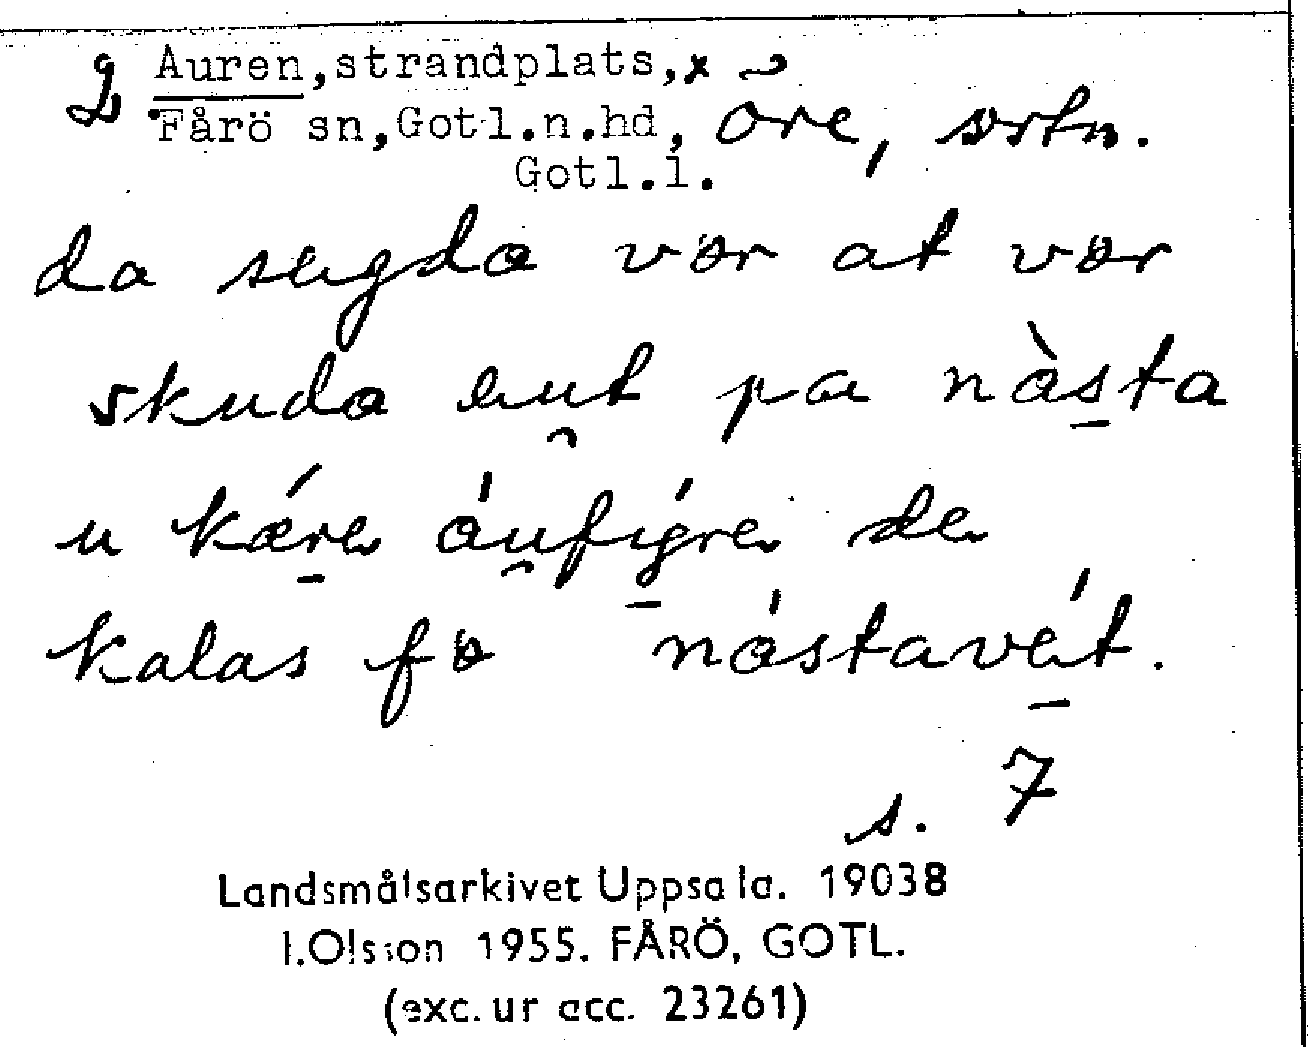 Auren, strandplats, x
Fårö sn, Gotl.n.hd, ore, ortn.
Gotl.l.
da segda vør at vør
skuda eut pa nàsta
u kǽre áufigre de
kalas fø nástavét.
s. 7
Landsmålsarkivet Uppsala. 19038
I.Olsson 1955. FÅRÖ, GOTL.
(exc. ur acc. 23261)